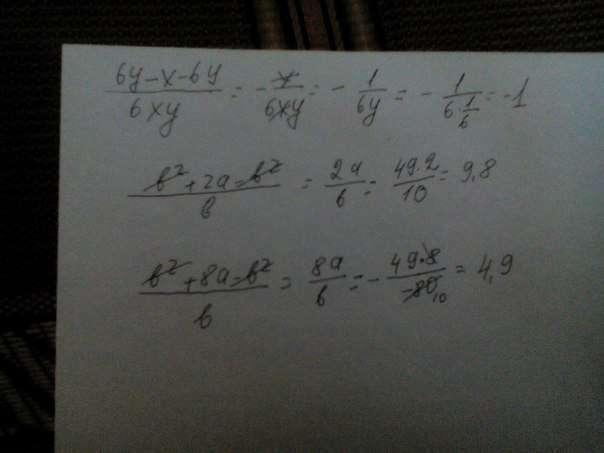 (6y-x-6y)/(6xy) = -x/(6xy) = -1/(6y) = -1/(6·1/6) = -1
(b²+2a-b²)/b = 2a/b = (49·2)/10 = 9,8
(b²+8a-b²)/b = 8a/b = -(49·8)/(-80) 10 = 4,9